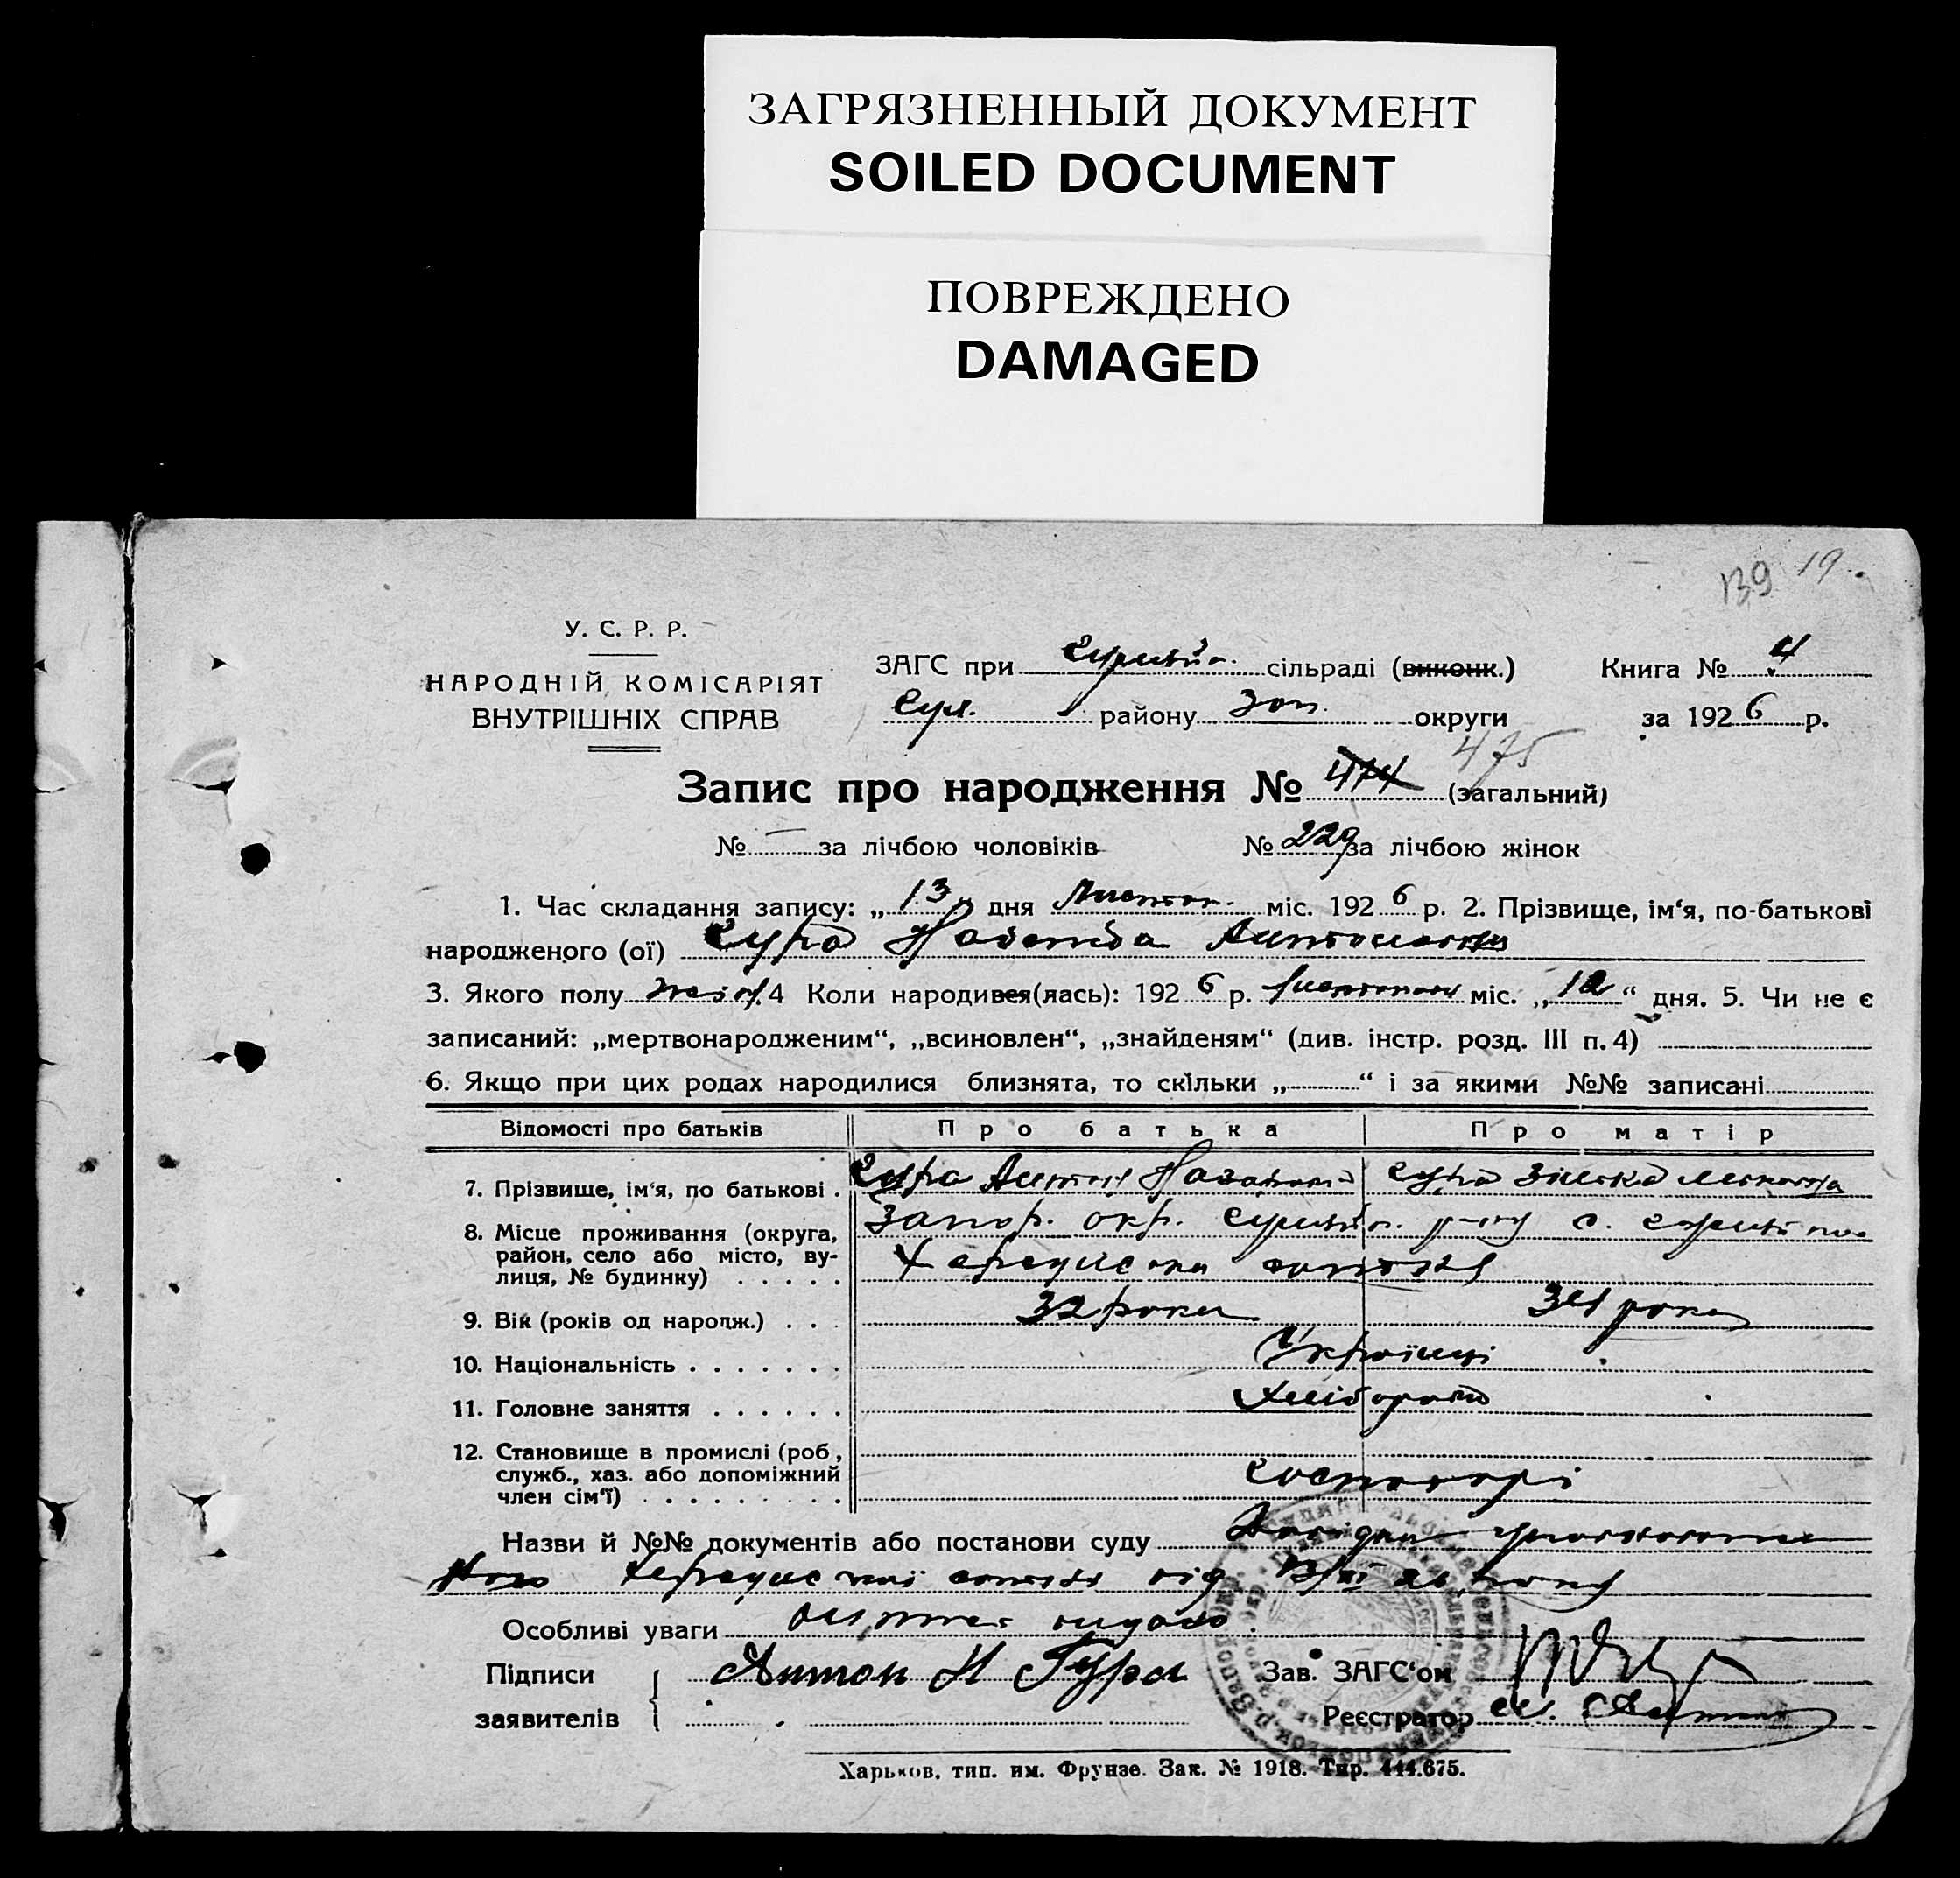 ЗАГРЯЗНЕННЫЙ ДОКУМЕНТ
SOILED DOCUMENT
ПОВРЕЖДЕНО
DAMAGED
139 19
У. С. Р. Р.
НАРОДНІЙ КОМІСАРІЯТ
ВНУТРІШНІХ СПРАВ
ЗАГС при сільраді (виконк.)
району Зап. округи
Книга № 4
за 1926 р.
Запис про народження № 474 475 (загальний)
№ — за лічбою чоловіків № 229 за лічбою жінок
1. Час складання запису: „13„ дня Листоп. міс. 1926 р. 2. Прізвище, ім‘я, по-батькові
народженого (ої) Гура Надежда Антоновна
3. Якого полу жін. 4 Коли народився(лась): 1926 р. листопада міс. „12“ дня. 5. Чи не є
записаний: „мертвонародженим“, „всиновлен“, „знайденям“ (див. інстр. розд. III п. 4)
6. Якщо при цих родах народилися близнята, то скільки „ “ і за якими №№ записані
Відомості про батьків Про батька Про матір
7. Прізвище, ім‘я, по батькові . Гура Антон Назарович Гура
8. Місце проживання (округа, район, село або місто, ву-лиця, № будинку) . . . . . Запор. окр. р-ну с.
9. Вік (років од народж.) . . . 32 роки 34 роки
10. Національність . . . . . . . Українці
11. Головне заняття . . . . . . Хлібороби
12. Становище в промислі (роб, служб., хаз. або допоміжний член сім‘ї) . . . . . . . . . Господарі
Назви й №№ документів або постанови суду Довідка
від 13/XI
Особливі уваги видано
Підписи заявителів Антон Н Гура
Зав. ЗАГС‘ом
Реєстратор
Харьков, тип. им. Фрунзе. Зак. № 1918. Тир. 444.675.